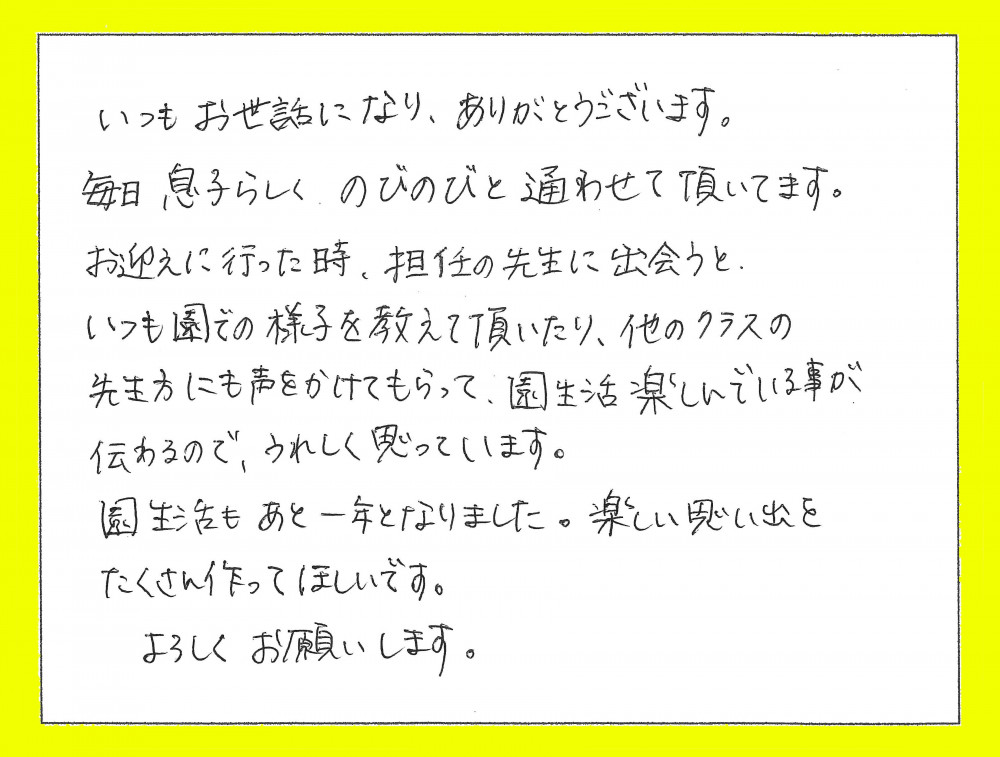 いつもお世話になり、ありがとうございます。
毎日 息子らしく のびのびと通わせて頂いてます。
お迎えに行った時、担任の先生に出会うと、
いつも園での様子を教えて頂いたり、他のクラスの
先生方にも声をかけてもらって、園生活楽しんでいる事が
伝わるので、うれしく思っています。
園生活もあと一年となりました。楽しい思い出を
たくさん作ってほしいです。
よろしくお願いします。